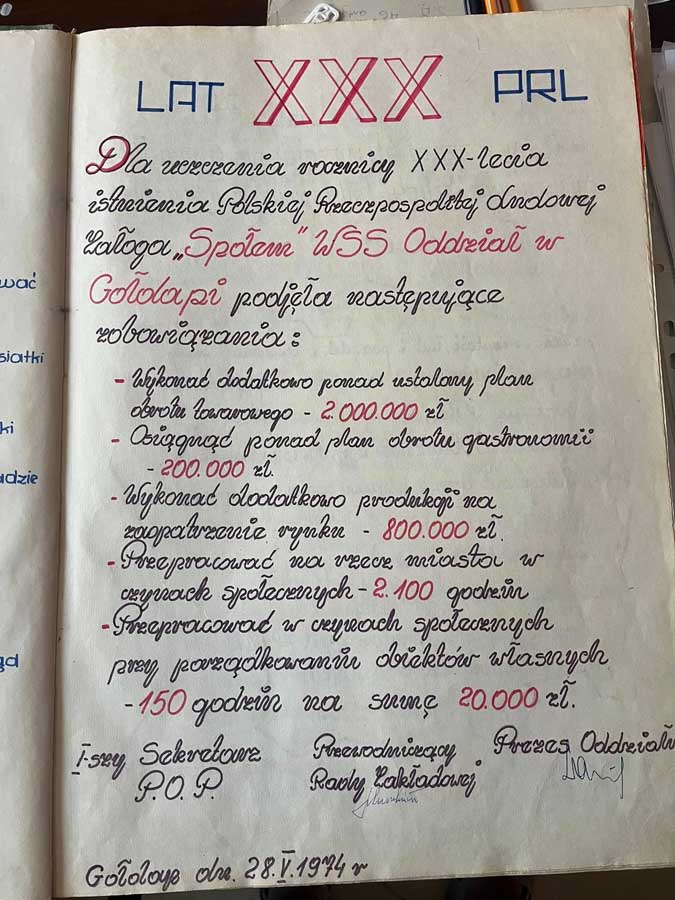 LAT XXX PRL
Dla uczczenia rocznicy XXX-lecia
istnienia Polskiej Rzeczpospolitej Ludowej
Załoga „Społem" WSS Oddział w
Gołdapi podjęła następujące
zobowiązania:
- Wykonać dodatkowo ponad ustalony plan
obrotu towarowego - 2.000.000 zł
- Osiągnąć ponad plan obrotu gastronomii
- 200.000 zł.
- Wykonać dodatkowo produkcji na
zaopatrzenie rynku - 800.000 zł.
- Przepracować na rzecz miasta w
czynach społecznych - 2.100 godzin
- Przepracować w czynach społecznych
przy porządkowaniu obiektów własnych
- 150 godzin na sumę 20.000 zł.
I-szy Sekretarz Przewodniczący Prezes Oddziału
P.O.P. Rady Zakładowej
dn. 28.V.1974 r
wać
siatki
ki
adzie